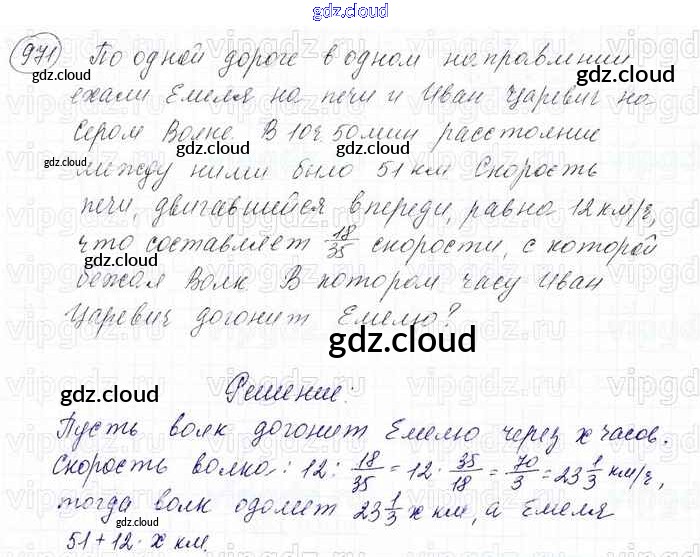 gdz.cloud
971) По одной дороге в одном направлении
ехали Емеля на печи и Иван Царевич на
Сером Волке. В 10 ч. 50 мин расстояние
между ними было 51 км Скорость
печи, двигавшейся впереди, равна 12 км/ч,
что составляет 18/35 скорости, с которой
бежал Волк В котором часу Иван
Царевич догонит Емелю?
gdz.cloud
gdz.cloud
gdz.cloud
gdz.cloud
gdz.cloud
gdz.cloud
gdz.cloud
Решение:
gdz.cloud
Пусть волк догонит Емелю через x часов.
Скорость волка: 12 : 18/35 = 12 · 35/18 = 70/3 = 23 1/3 км/ч,
gdz.cloud
gdz.cloud
тогда волк одолеет 23 1/3 x км, а Емеля
51 + 12 · x км.
gdz.cloud
gdz.cloud